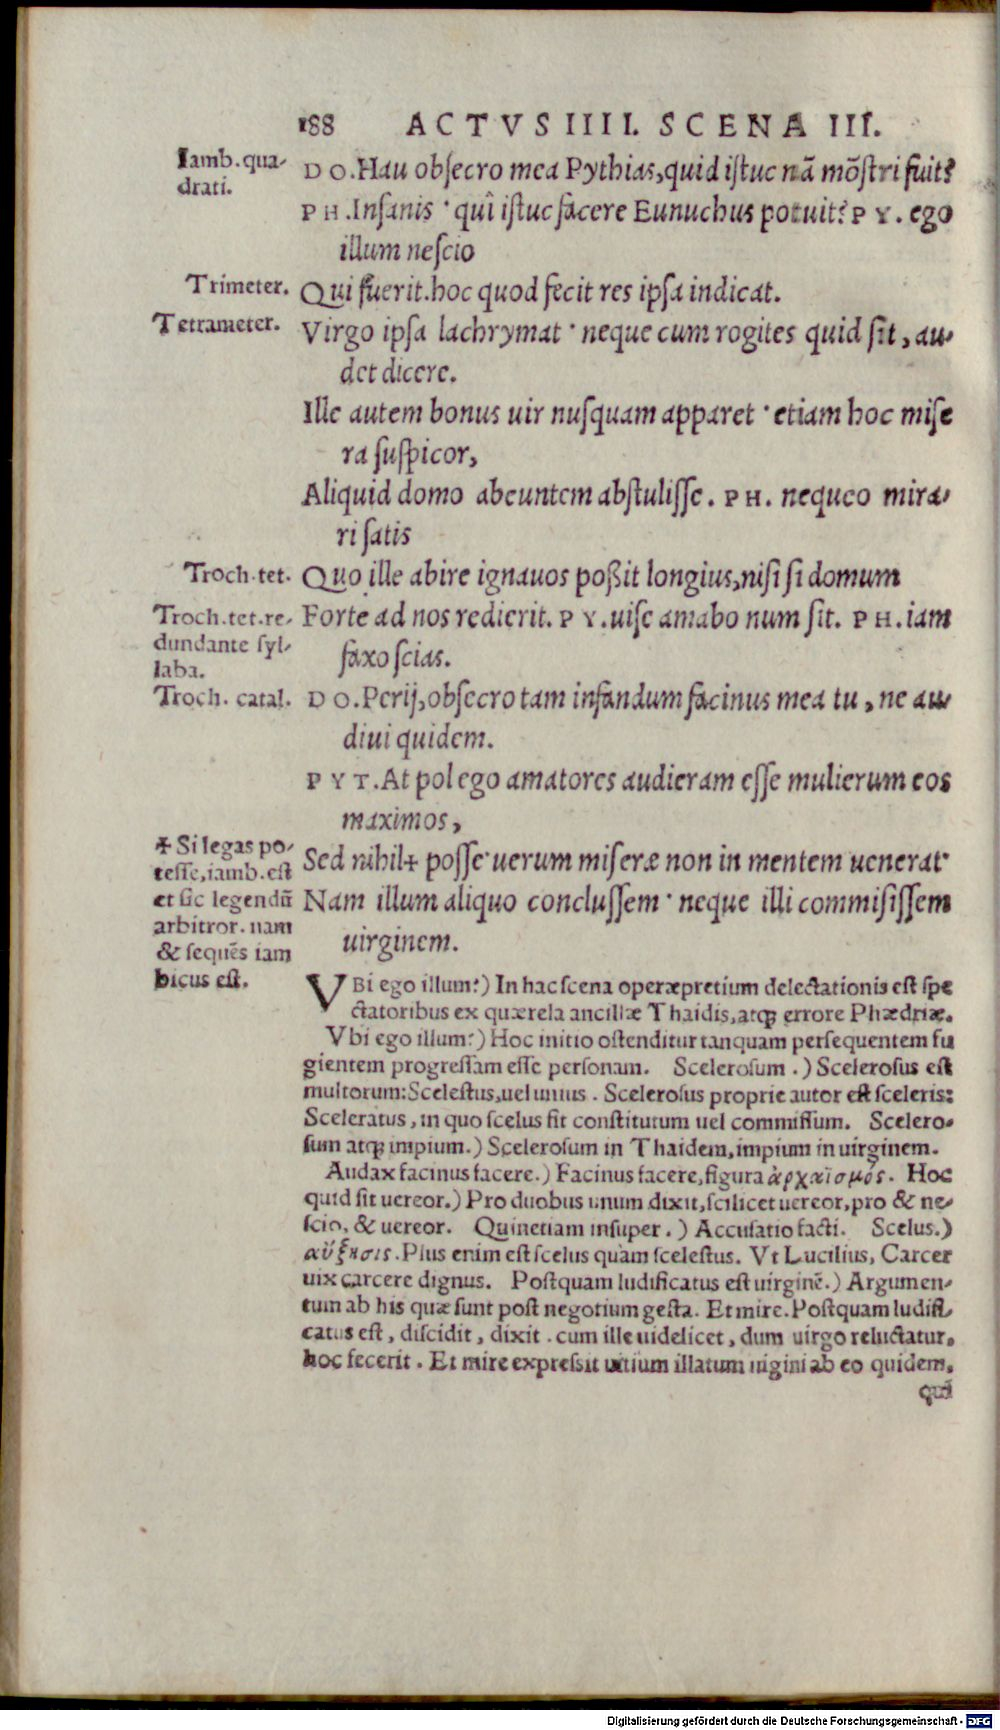 188 ACTVS IIII. SCENA III.
Iamb. qua-
drati.
DO. Hau obſecro mea Pythias, quid iſtuc nā mōſtri fuit?
PH. Inſanis · quî iſtuc facere Eunuchus potuit? PY. ego
illum neſcio
Trimeter.
Qui fuerit. hoc quod fecit res ipſa indicat.
Tetrameter.
Virgo ipſa lachrymat · neque cum rogites quid ſit, au-
det dicere.
Ille autem bonus uir nuſquam apparet · etiam hoc miſe
ra ſuſpicor,
Aliquid domo abeuntem abſtuliſſe. PH. nequeo mira-
ri ſatis
Troch. tet.
Quo ille abire ignauos poßit longius, niſi ſi domum
Troch. tet. re-
dundante ſyl-
laba.
Forte ad nos redierit. PY. uiſe amabo num ſit. PH. iam
faxo ſcias.
Troch. catal.
DO. Perij, obſecro tam infandum facinus mea tu, ne au-
diui quidem.
PYT. At pol ego amatores audieram eſſe mulierum eos
maximos,
✢ Si legas po-
teſſe, iamb. eſt
et ſic legendū
arbitror. nam
& ſequēs iam
bicus eſt.
Sed nihil✢ poſſe · uerum miſeræ non in mentem uenerat ·
Nam illum aliquo concluſſem · neque illi commiſiſſem
uirginem.
VBi ego illum?) In hac ſcena operæpretium delectationis eſt ſpe
ctatoribus ex quærela ancillæ Thaidis, atq; errore Phædriæ.
Vbi ego illum?) Hoc initio oſtenditur tanquam perſequentem fu
gientem progreſſam eſſe perſonam. Sceleroſum.) Sceleroſus eſt
multorum: Sceleſtus, uel unius. Sceleroſus proprie autor eſt ſceleris:
Sceleratus, in quo ſcelus ſit conſtitutum uel commiſſum. Scelero-
ſum atq; impium.) Sceleroſum in Thaidem, impium in uirginem.
Audax facinus facere.) Facinus facere, figura ἀρχαϊσμός. Hoc
quid ſit uereor.) Pro duobus unum dixit, ſcilicet uereor, pro & ne-
ſcio, & uereor. Quinetiam inſuper.) Accuſatio facti. Scelus.)
αὔξησις. Plus enim eſt ſcelus quàm ſceleſtus. Vt Lucilius, Carcer
uix carcere dignus. Poſtquam ludificatus eſt uirginē.) Argumen-
tum ab his quæ ſunt poſt negotium geſta. Et mire. Poſtquam ludifi-
catus eſt, diſcidit, dixit. cum ille uidelicet, dum uirgo reluctatur,
hoc fecerit. Et mire expreſsit uitium illatum uigini ab eo quidem,
qui
Digitalisierung gefördert durch die Deutsche Forschungsgemeinschaft - DFG